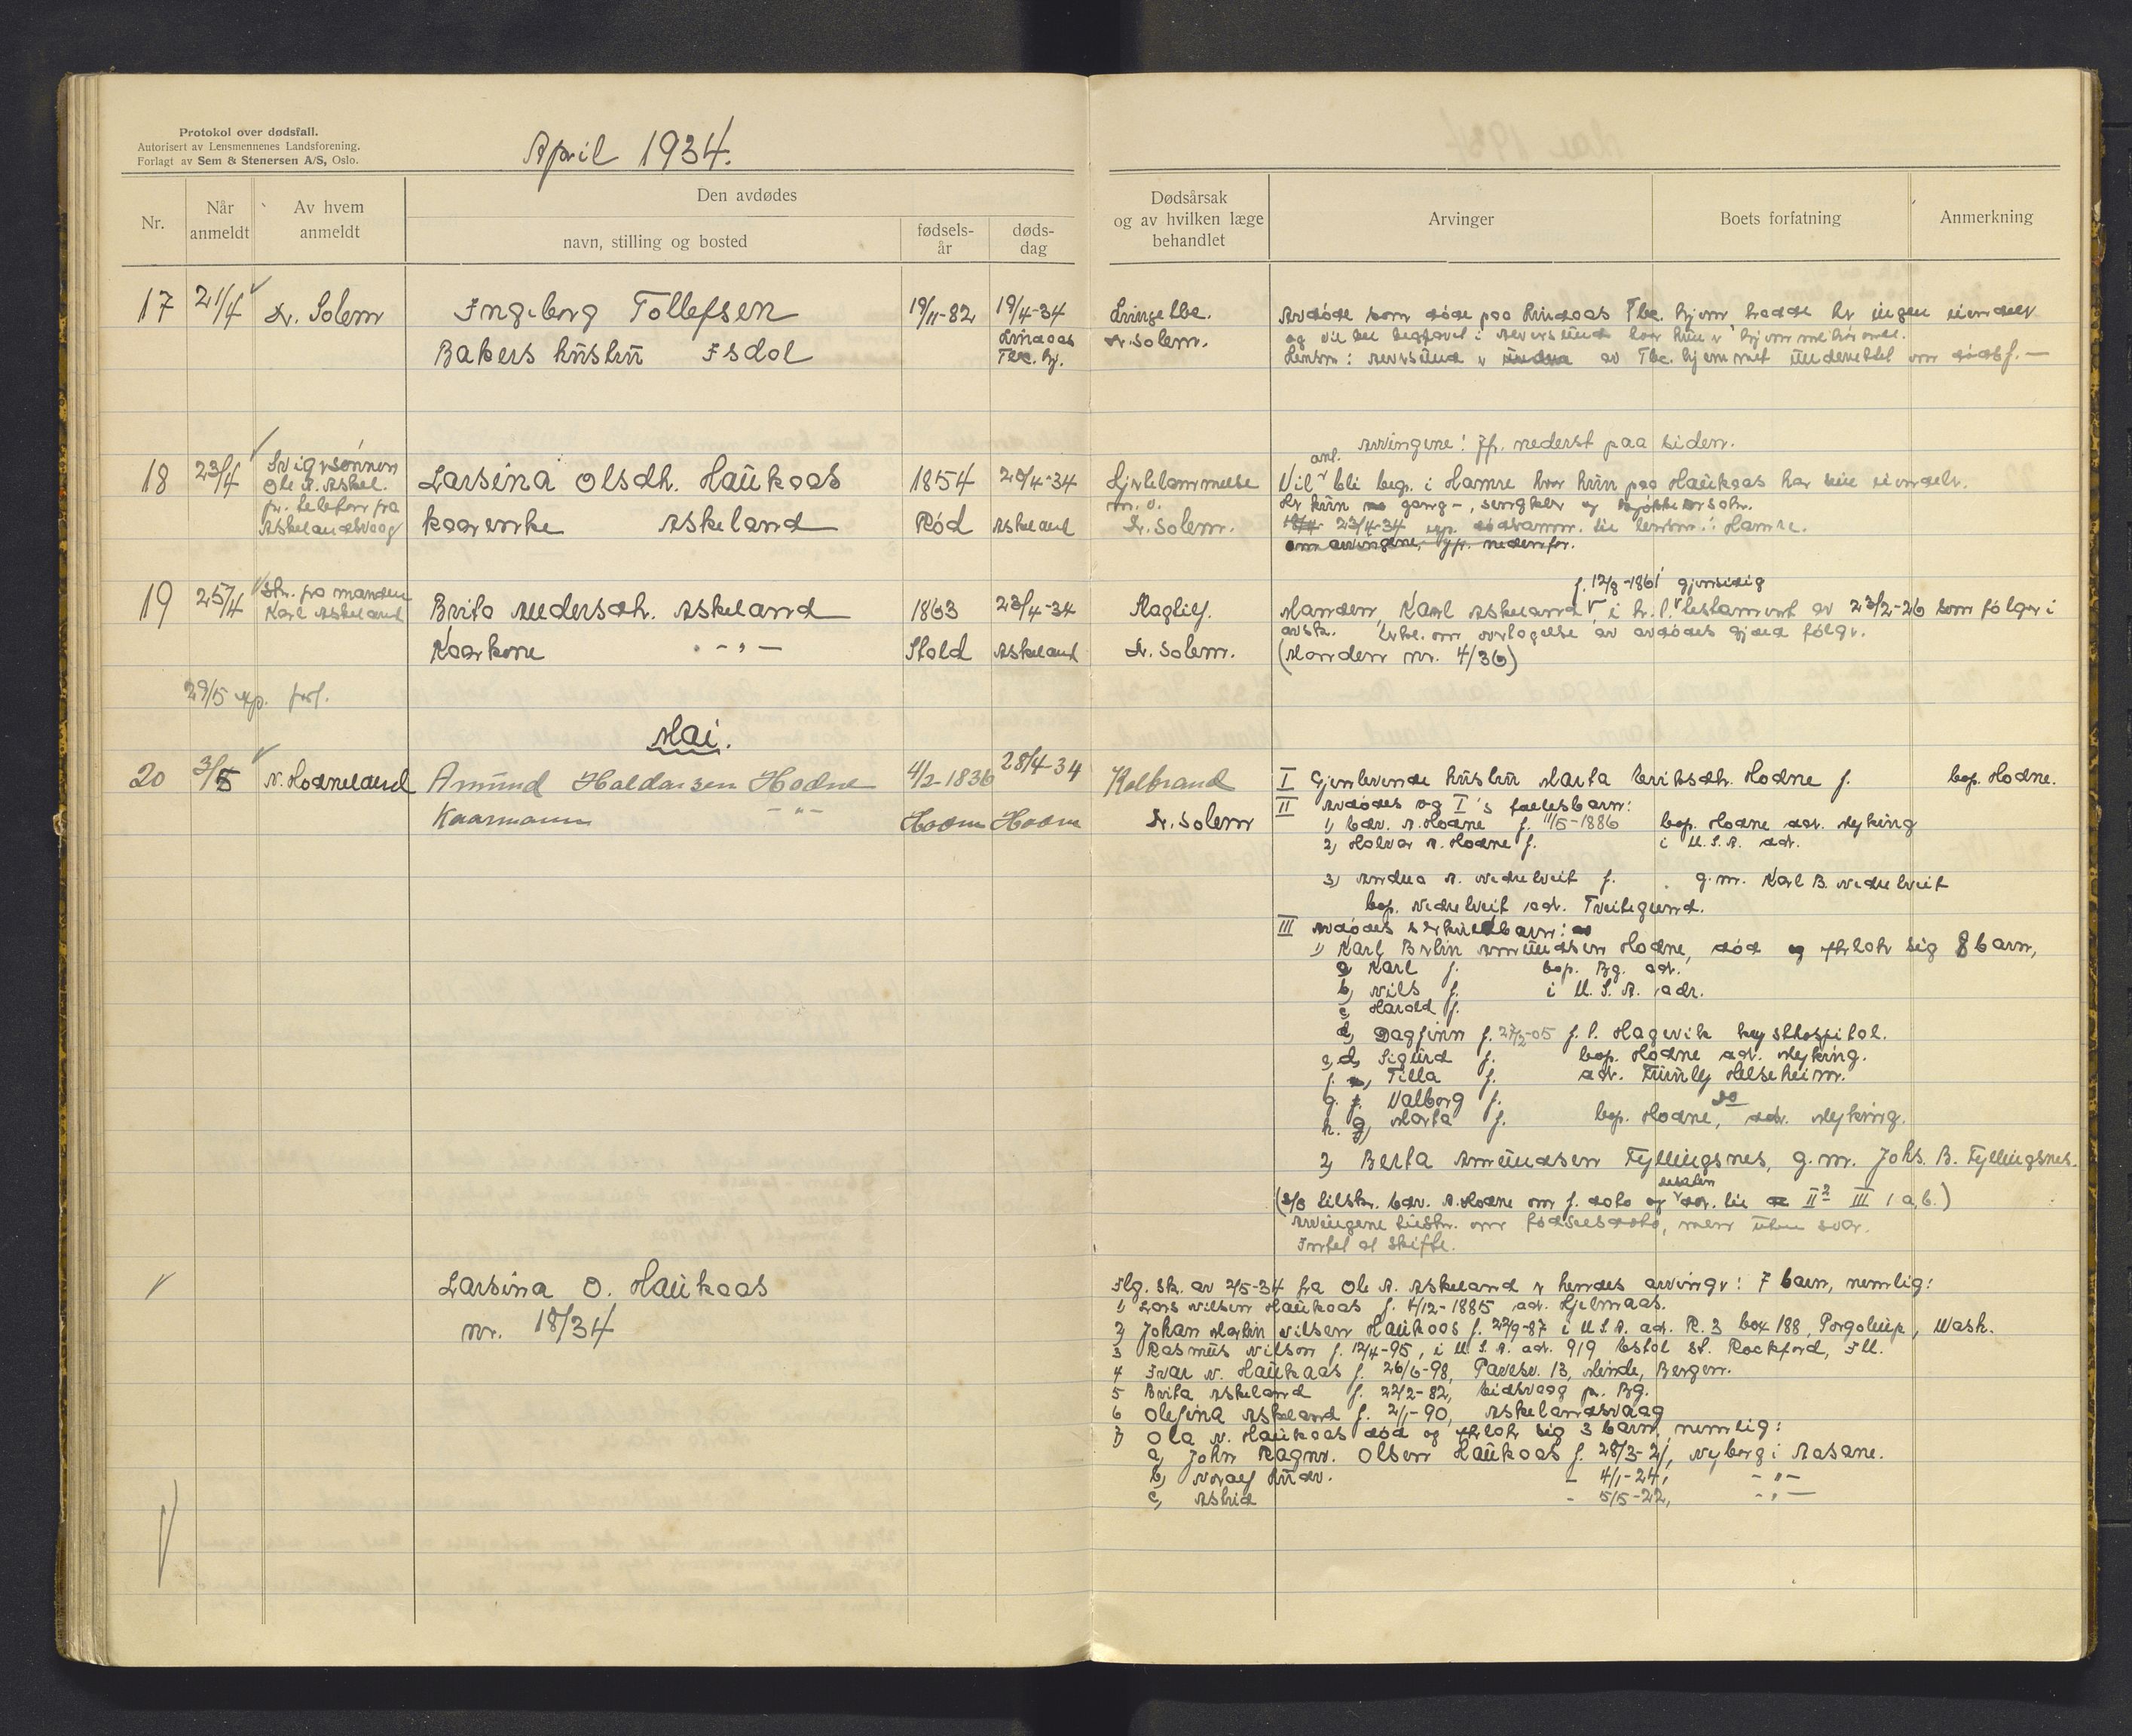 Protokol over dødsfall.
Autorisert av Lensmennenes Landsforening.
Forlagt av Sem & Stenersen A/S, Oslo.
April 1934.
Nr.
Når anmeldt
Av hvem anmeldt
Den avdødes
navn, stilling og bosted
fødsels-år
døds-dag
Dødsårsak og av hvilken læge behandlet
Arvinger
Boets forfatning
Anmerkning
17 21/4 Dr. Solem Ingeborg Tollefsen 19/11-82 19/4-34 Lungetbc.
Bakers hustru Isdal Lindaas Tbc. hj. Dr. Solem.
Avdøde som døde paa Lindaas Tbc. hjem hadde her ingen eiendeler
og vil bli begravet i Alversund hvor hun er hjemmehørende.
Lensm. i Alversund er av Tbc. hjemmet underrettet om dødsf. —
Arvingene: Jfr. nederst paa siden.
18 23/4 Svigersønnen Ole A. Askel. pr. telefon fra Askelandsvaag
Larsina Olsdtr. Haukaas 1854 20/4-34 Hjertelammelse m. v.
kaarenke Askeland Rød Askeland Dr. Solem.
Vil anl. bli begr. i Hamre hvor hun paa Haukaas har sine eiendeler.
Her kun gang-, sengklær og
19/4 23/4-34 exp. dødsanm. til lensm. i Hamre.
om arvingene, jfr. nedenfor.
19 25/4 Skr. fra manden Karl Askeland
Brita Andersdtr. Askeland 1863 23/4-34 Slagtilf.
Kaarkone - " - Stold Askeland Dr. Solem.
f. 12/8-1861 gjensidig
Manden, Karl Askeland, i h. t. testament av 23/2-26 som følger i
avskr. Erkl. om overtagelse av avdødes gjæld følger.
(Manden nr. 4/36)
29/5 exp. forf.
Mai.
20 3/5 N. Hodneland Amund Haldorsen Hodne 4/2-1836 28/4-34 Kolbrand
Kaarmann - " - Hodne Hodne Dr. Solem
I Gjenlevende hustru Marta Eriksdtr. Hodne f. bop. Hodne.
II Avdødes og I's fællesbarn:
1) Edv. A. Hodne f. 11/5-1886 bop. Hodne adr. Myking
2) Halvor A. Hodne f. i U.S.A. adr.
3) Andrea A. Nedrebveit f. g.m. Karl B. Nedrebveit
bop. Nedrebveit adr. Tveitegrend.
III Avdødes særkuldbarn:
1) Karl Berlin Amundsen Hodne, død og efterlot sig 8 barn,
a) Karl f. bop. Bg. adr.
b) Nils f. i U.S.A. adr.
c) Harald f.
d) Dagfinn f. 27/2-05 f. t. Hagevik kysthospital.
e) d) Sigurd f. bop. Hodne adr. Myking.
f. e) Tilla f. adr. Furuly Helseheim.
g. f. Valborg f. do
h. g) Marta f. bop. Hodne, adr. Myking.
2) Berta Amundsen Fyllingsnes, g.m. Johs. B. Fyllingsnes.
(2/8 tilskr. Edv. A. Hodne om f. dato og adr. til II 2 III 1 a, b.)
Arvingene tilskr. om fødselsdato, men uten svar.
Intet at skifte.
Larsina O. Haukaas
nr. 18/34
Iflg. sk. av 2/5-34 fra Ole A. Askeland er hendes arvinger: 7 barn, nemlig:
1) Lars Nilsen Haukaas f. 4/12-1885 adr. Hjelmaas.
2) Johan Martin Nilsen Haukaas f. 22/9-87 i U.S.A. adr. R. 3 box 188, Wash.
3 Rasmus Nilson f. 12/4-95, i U.S.A. adr. 919 St. Rockford, Ill.
4 Ivar N. Haukaas f. 26/6-98, 13, Minde, Bergen.
5 Brita Askeland f. 22/2-82, Eidsvaag pr. Bg.
6 Olefina Askeland f. 2/1-90, Askelandsvaag
7) Ola N. Haukaas død og efterlot sig 3 barn, nemlig:
a) John Ragnv. Olsen Haukaas f. 28/3-21, Nyborg i Aasane.
b) Noralf - 4/1-24, - " -
c) Astrid - 5/5-22, - " -